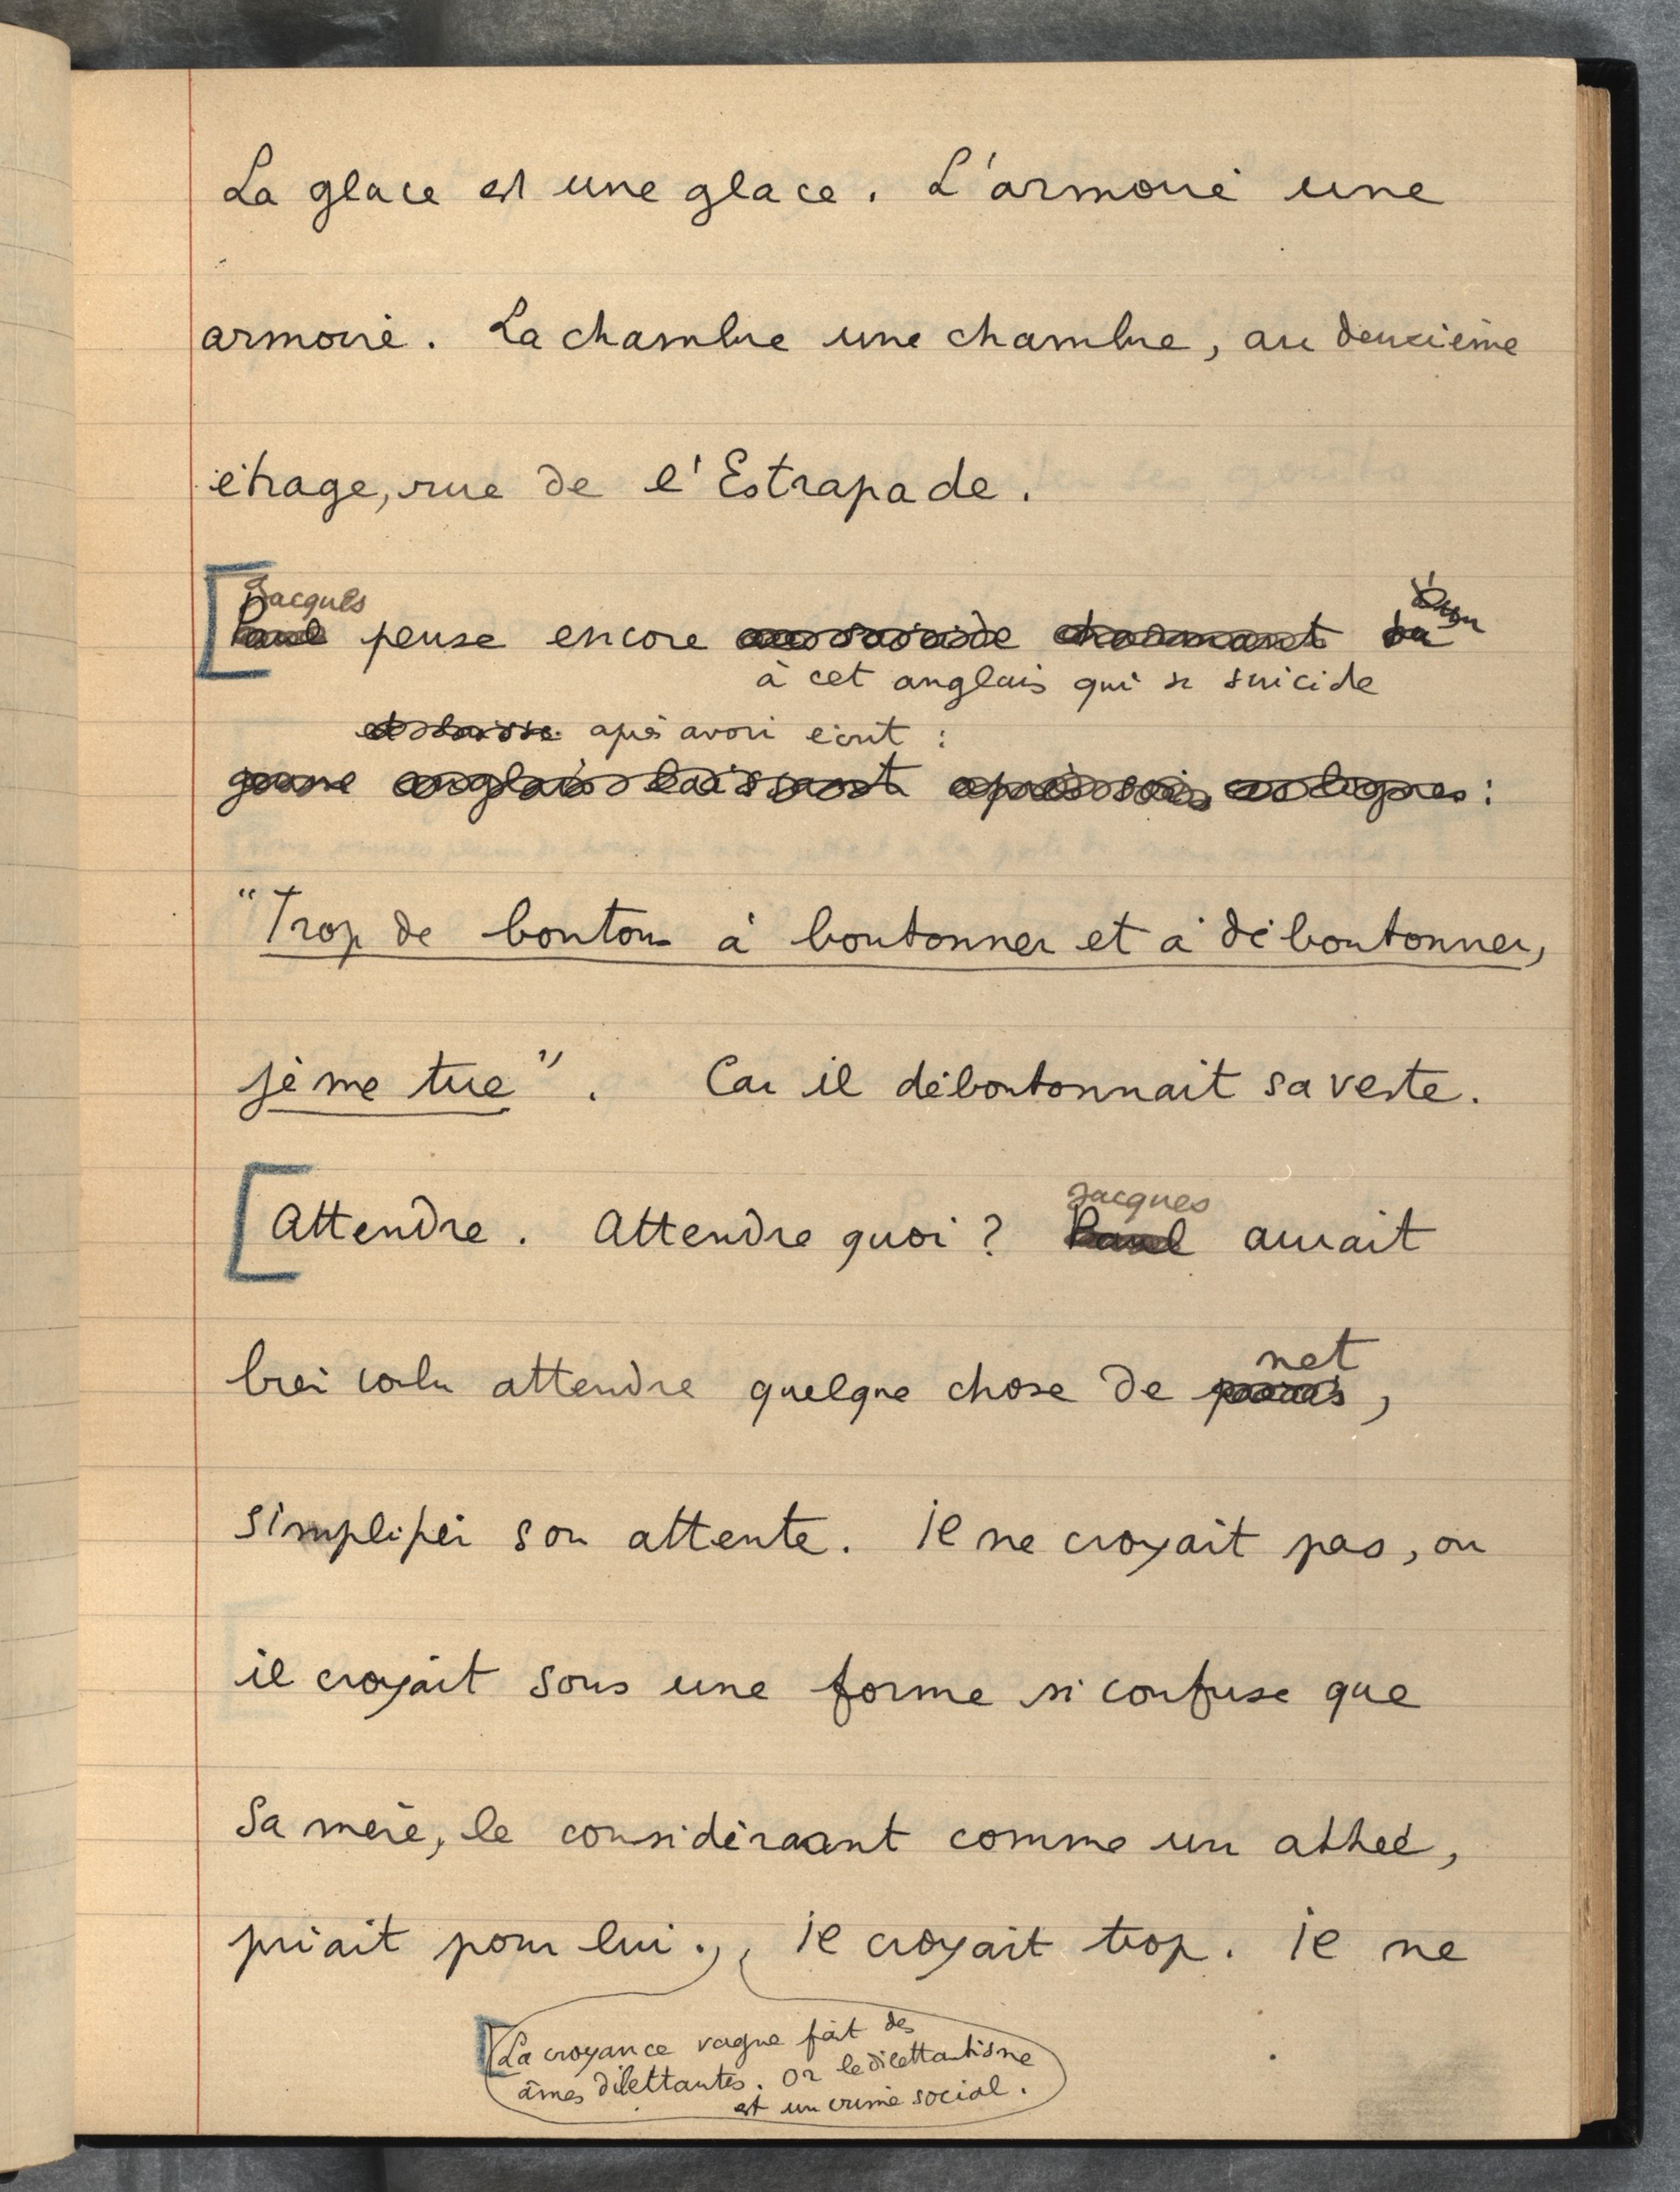 La glace est une glace. L'armoire une
armoire. La chambre une chambre, au deuxième
étage, rue de l'Estrapade.
Jacques
Paul pense encore au suicide charmant du
d'un
à cet anglais qui se suicide
et laisse après avoir écrit :
jeune anglais laissant après soi ces lignes :
"Trop de boutons à boutonner et à déboutonner,
je me tue". Car il déboutonnait sa veste.
Jacques
Attendre. Attendre quoi ? Paul aurait
net
bien voulu attendre quelque chose de précis,
simplifier son attente. Il ne croyait pas, ou
il croyait sous une forme si confuse que
Sa mère, le considéraant comme un athée,
priait pour lui. Il croyait trop. Il ne
La croyance vague fait des
âmes dilettantes. Or le dilettantisme
est un crime social.